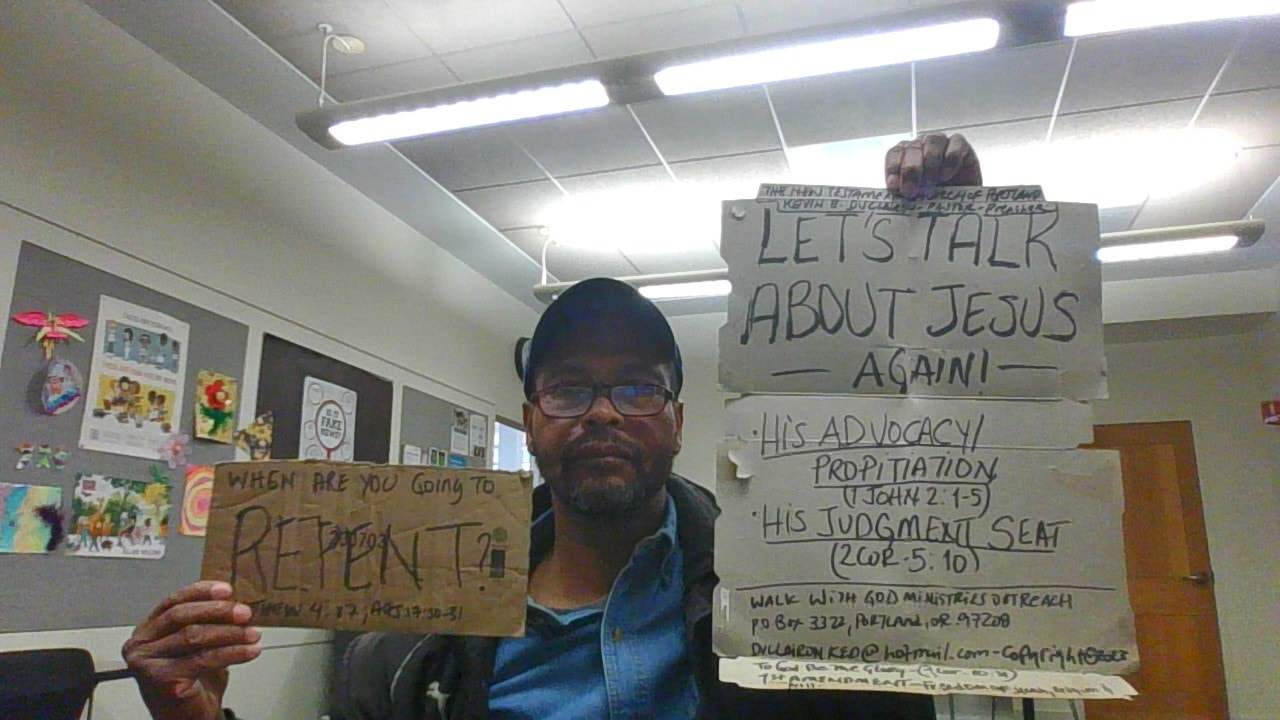 WHEN ARE YOU GOING TO
REPENT?
4:17; ACTS 17:30-31
THE NEW TESTAMENT CHURCH OF PORTLAND
KEVIN E. PASTOR-PREACHER
LET'S TALK
ABOUT JESUS
— AGAIN! —
• HIS ADVOCACY/
PROPITIATION
(1 JOHN 2:1-5)
• HIS JUDGMENT SEAT
(2 COR. 5:10)
WALK WITH GOD MINISTRIES OUTREACH
PO BOX 3322, PORTLAND, OR 97208
@hotmail.com - Copyright © 2023
TO GOD BE THE GLORY
1ST AMENDMENT
IS IT
FAKE
NEWS?